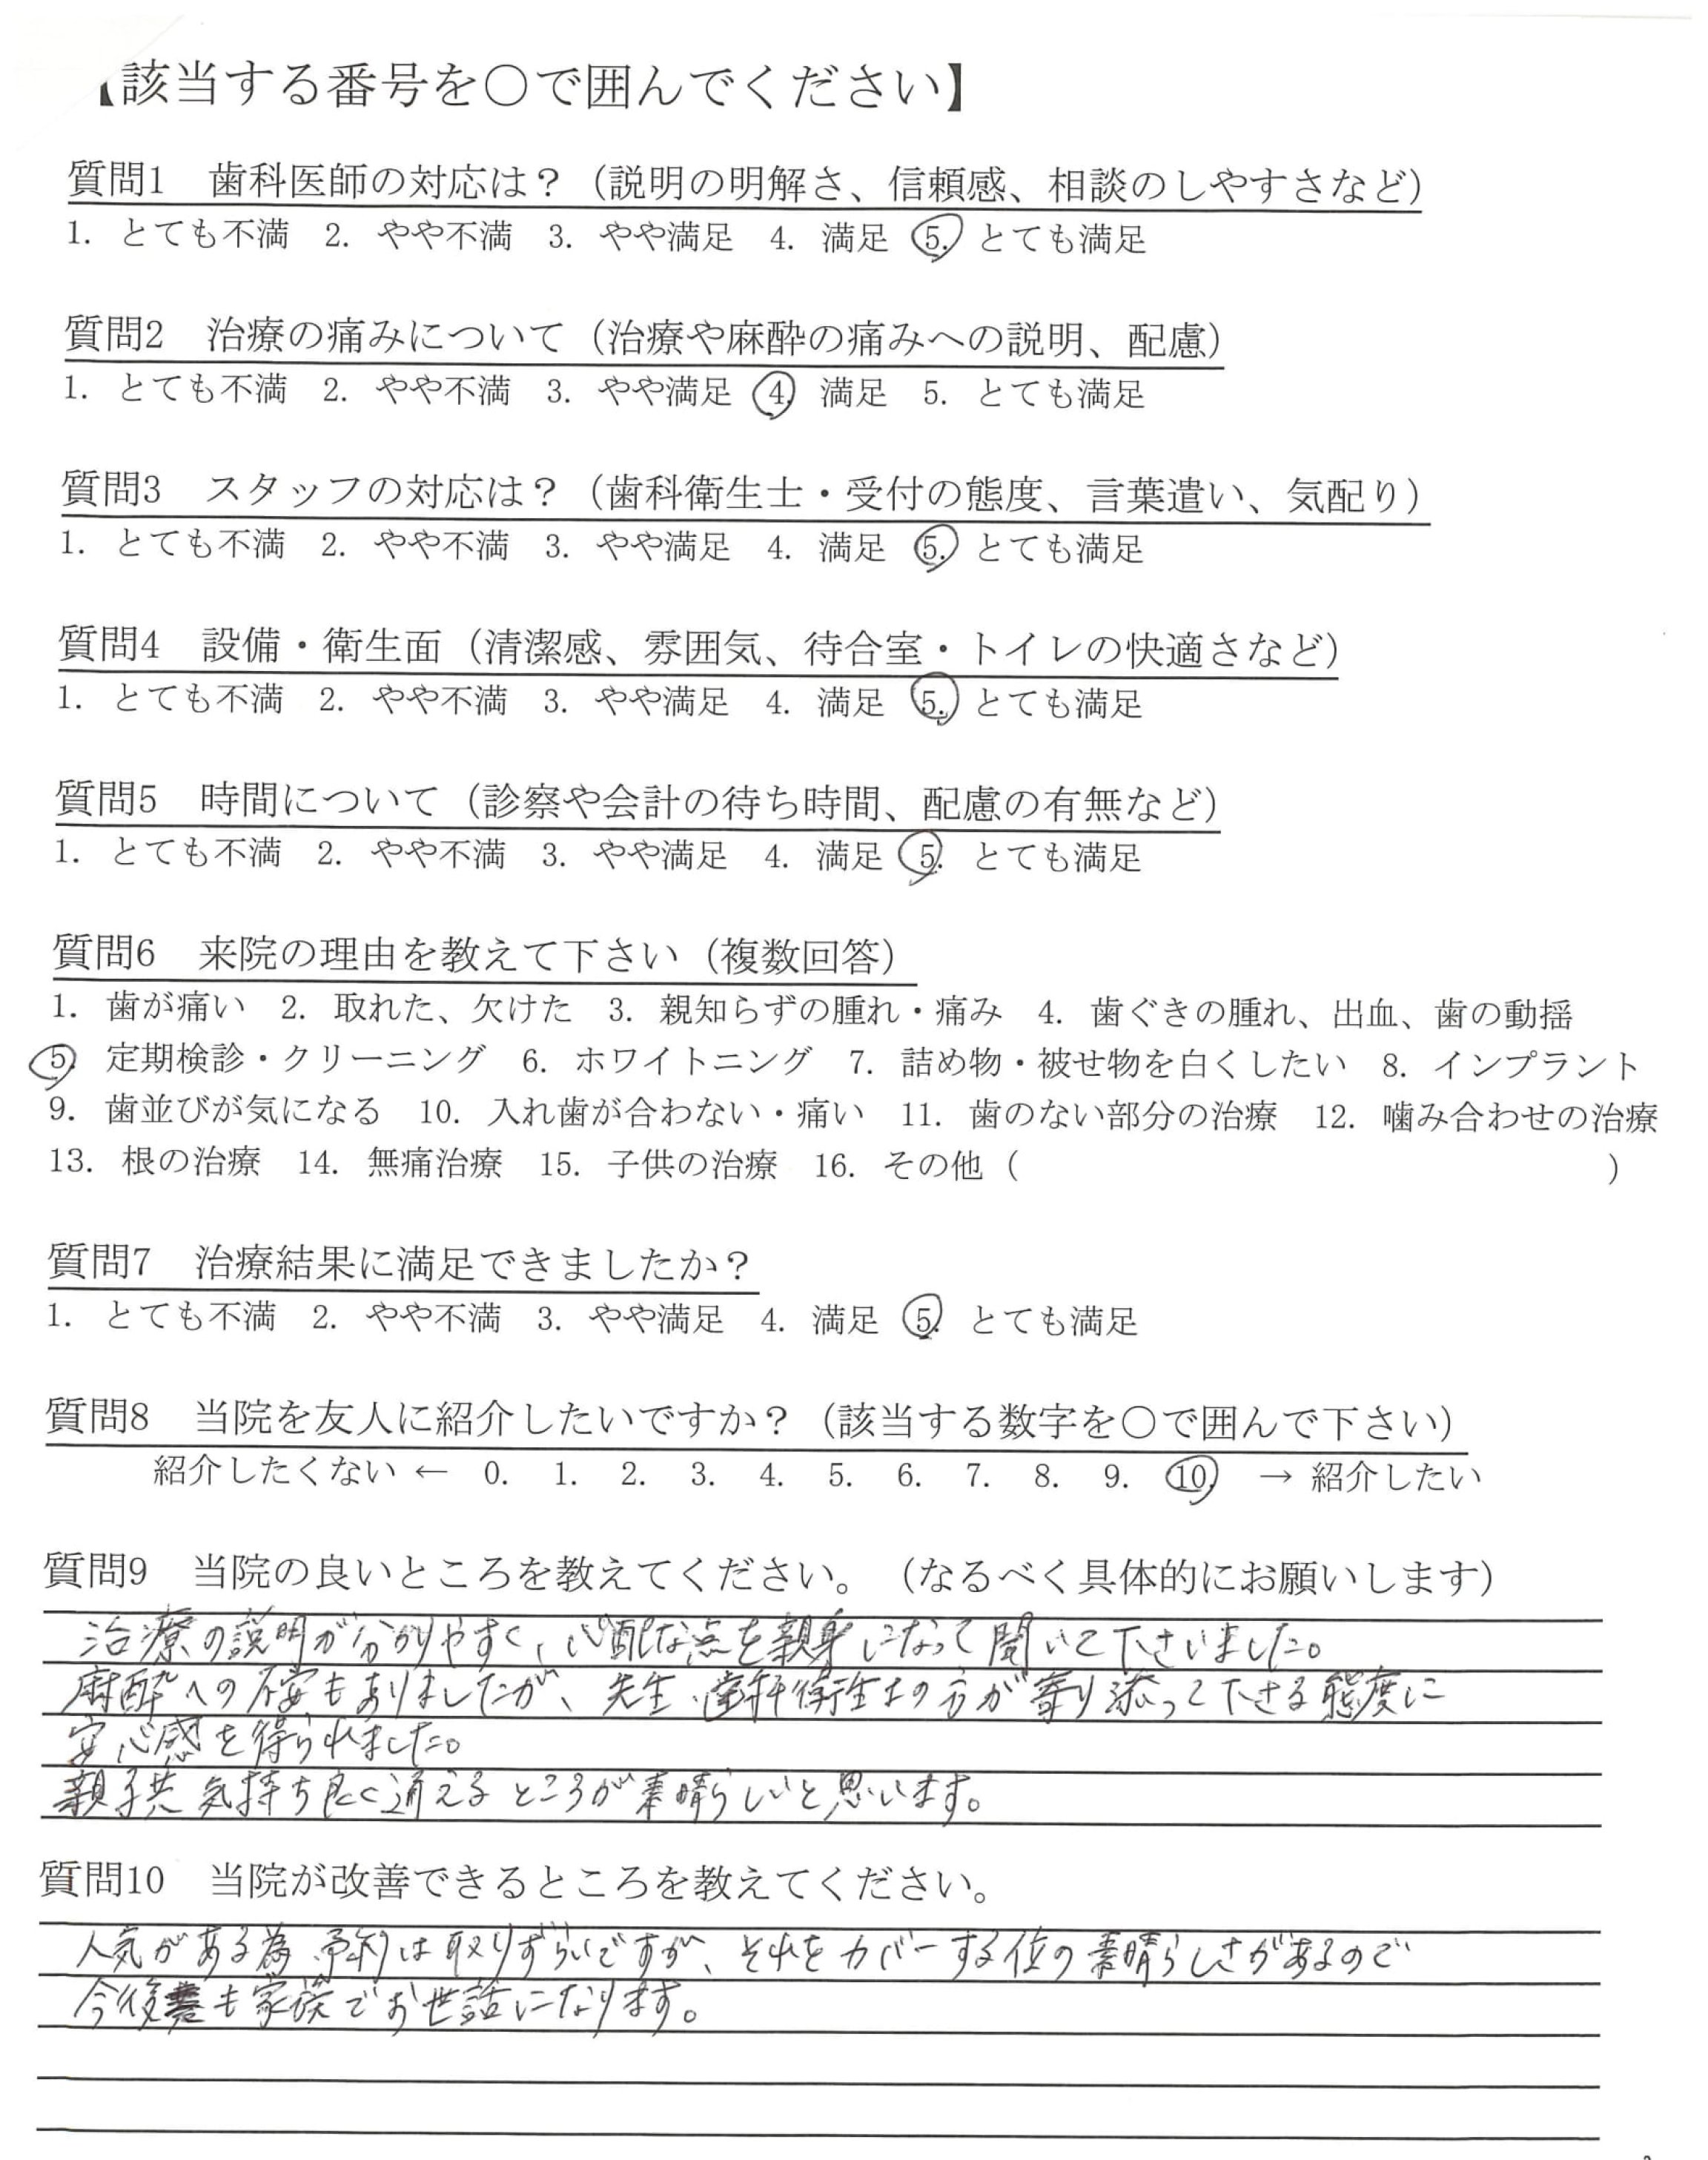 【該当する番号を〇で囲んでください】
質問1　歯科医師の対応は？（説明の明解さ、信頼感、相談のしやすさなど）
1. とても不満　2. やや不満　3. やや満足　4. 満足　5. とても満足
質問2　治療の痛みについて（治療や麻酔の痛みへの説明、配慮）
1. とても不満　2. やや不満　3. やや満足　4. 満足　5. とても満足
質問3　スタッフの対応は？（歯科衛生士・受付の態度、言葉遣い、気配り）
1. とても不満　2. やや不満　3. やや満足　4. 満足　5. とても満足
質問4　設備・衛生面（清潔感、雰囲気、待合室・トイレの快適さなど）
1. とても不満　2. やや不満　3. やや満足　4. 満足　5. とても満足
質問5　時間について（診察や会計の待ち時間、配慮の有無など）
1. とても不満　2. やや不満　3. やや満足　4. 満足　5. とても満足
質問6　来院の理由を教えて下さい（複数回答）
1. 歯が痛い　2. 取れた、欠けた　3. 親知らずの腫れ・痛み　4. 歯ぐきの腫れ、出血、歯の動揺
5. 定期検診・クリーニング　6. ホワイトニング　7. 詰め物・被せ物を白くしたい　8. インプラント
9. 歯並びが気になる　10. 入れ歯が合わない・痛い　11. 歯のない部分の治療　12. 噛み合わせの治療
13. 根の治療　14. 無痛治療　15. 子供の治療　16. その他（　　　　　　　　）
質問7　治療結果に満足できましたか？
1. とても不満　2. やや不満　3. やや満足　4. 満足　5. とても満足
質問8　当院を友人に紹介したいですか？（該当する数字を〇で囲んで下さい）
紹介したくない ← 0. 1. 2. 3. 4. 5. 6. 7. 8. 9. 10. → 紹介したい
質問9　当院の良いところを教えてください。（なるべく具体的にお願いします）
治療の説明が分かりやすく、心配な点を親身になって聞いて下さいました。
麻酔への不安もありましたが、先生、歯科衛生士の方が寄り添って下さる態度に
安心感を得られました。
親子共気持ち良く通えるところが素晴らしいと思います。
質問10　当院が改善できるところを教えてください。
人気がある為、予約は取りずらいですが、それをカバーする位の素晴らしさがあるので
今後も家族でお世話になります。